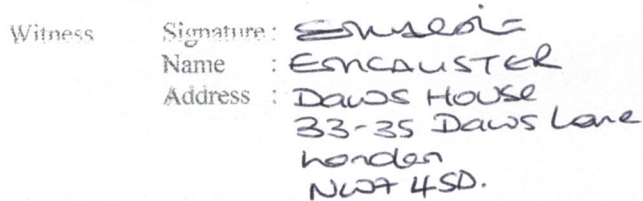 Witness Signature:
Name : EMCALISTER
Address : DAWS HOUSE
33-35 Daws Lane
London
NW7 4SD.